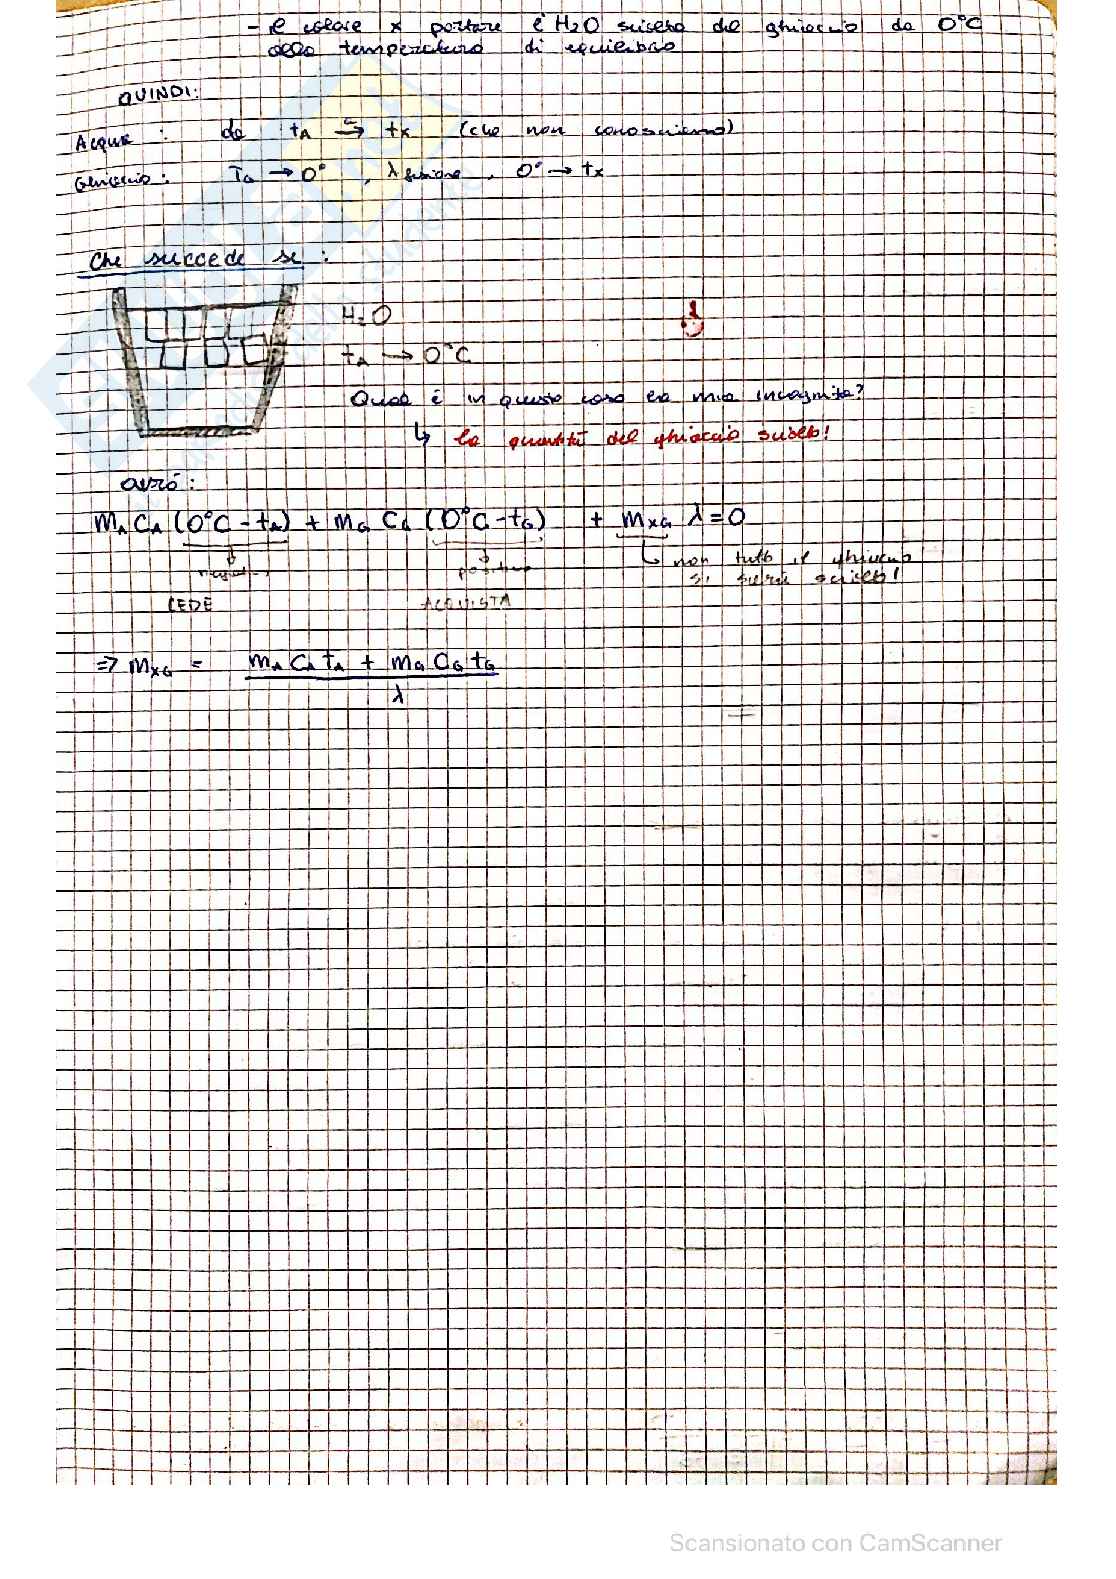 - il calore x portare l'H2O sciolta del ghiaccio da 0°C
alla temperatura di equilibrio
QUINDI:
Acqua : da tA → tx (che non conosciamo)
Ghiaccio: TG → 0° , λ fusione , 0° → tx
Che succede se :
H2O
tA → 0°C
Qual è in questo caso la mia incognita?
↳ la quantità del ghiaccio sciolto!
avrò :
mA CA (0°C - tA) + mG CG (0°C - tG) + mxG λ = 0
non tutto il ghiaccio
negativo positivo si sarà sciolto!
CEDE ACQUISTA
=> mxG = mA CA tA + mG CG tG
λ
Scansionato con CamScanner